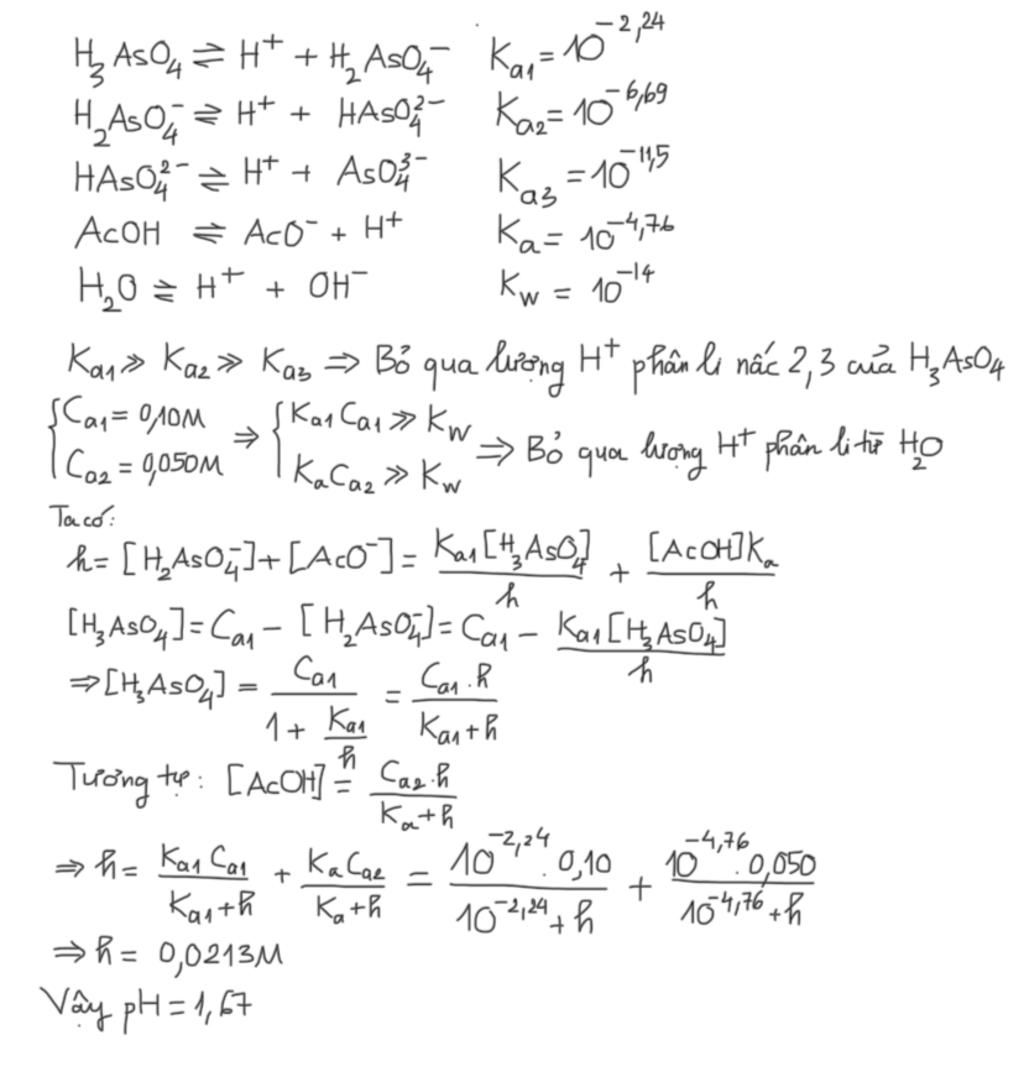 H₃AsO₄ ⇌ H⁺ + H₂AsO₄⁻ Kₐ₁ = 10^-2,24
H₂AsO₄⁻ ⇌ H⁺ + HAsO₄²⁻ Kₐ₂ = 10^-6,69
HAsO₄²⁻ ⇌ H⁺ + AsO₄³⁻ Kₐ₃ = 10^-11,5
AcOH ⇌ AcO⁻ + H⁺ Kₐ = 10^-4,76
H₂O ⇌ H⁺ + OH⁻ K_W = 10^-14
Kₐ₁ ≫ Kₐ₂ ≫ Kₐ₃ ⇒ Bỏ qua lượng H⁺ phân li nấc 2,3 của H₃AsO₄
{Cₐ₁ = 0,10M ⇒ {Kₐ₁Cₐ₁ ≫ K_W
{Cₐ₂ = 0,050M {KₐCₐ₂ ≫ K_W ⇒ Bỏ qua lượng H⁺ phân li từ H₂O
Ta có:
h = [H₂AsO₄⁻] + [AcO⁻] = Kₐ₁[H₃AsO₄]/h + [AcOH]Kₐ/h
[H₃AsO₄] = Cₐ₁ - [H₂AsO₄⁻] = Cₐ₁ - Kₐ₁[H₃AsO₄]/h
⇒ [H₃AsO₄] = Cₐ₁/(1 + Kₐ₁/h) = Cₐ₁.h/(Kₐ₁+h)
Tương tự: [AcOH] = Cₐ₂.h/(Kₐ+h)
⇒ h = Kₐ₁Cₐ₁/(Kₐ₁+h) + KₐCₐ₂/(Kₐ+h) = 10^-2,24.0,10/(10^-2,24+h) + 10^-4,76.0,050/(10^-4,76+h)
⇒ h = 0,0213M
Vậy pH = 1,67